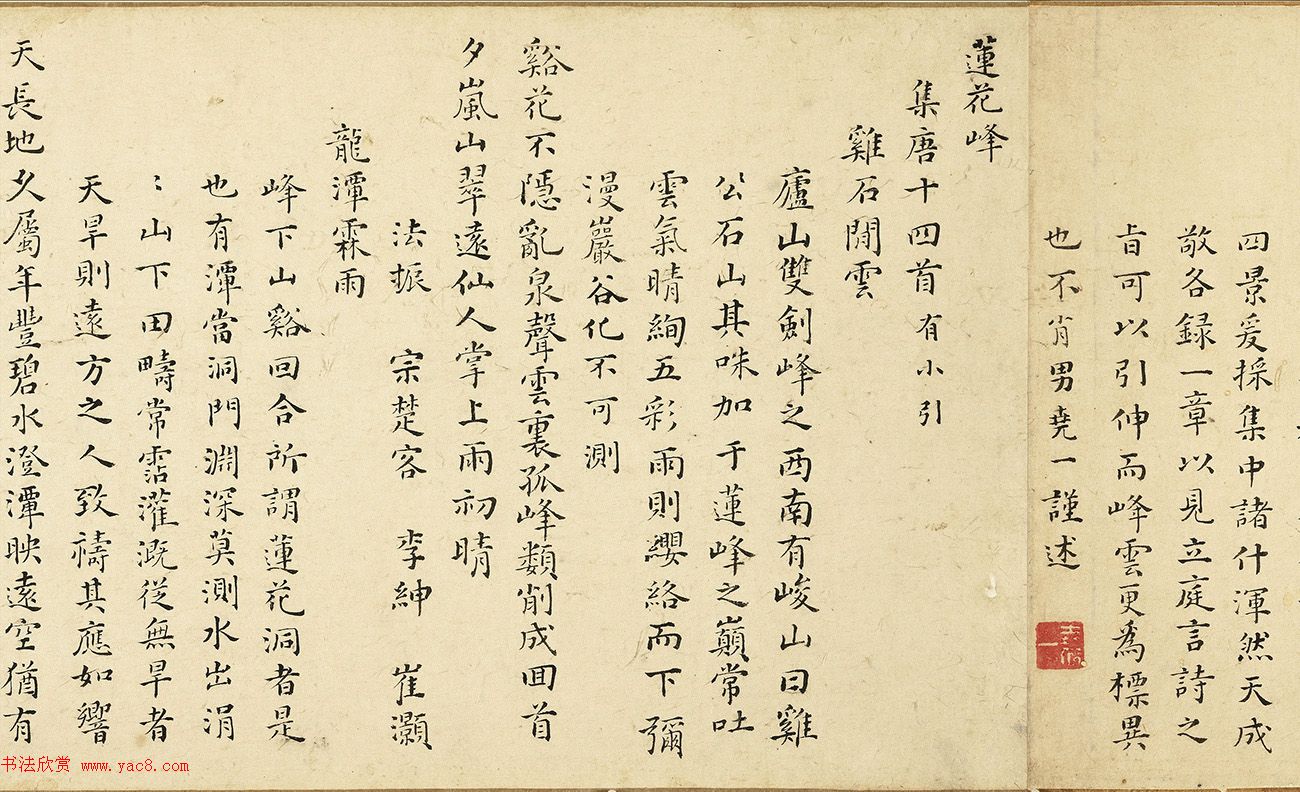 四景爰採集中諸什渾然天成
敬各録一章以見立庭言詩之
旨可以引伸而峰雲更為標異
也不肖男堯一謹述
蓮花峰
集唐十四首有小引
雞石閒雲
廬山雙劍峰之西南有峻山曰雞
公石山其咮加于蓮峰之巔常吐
雲氣晴絢五彩雨則纓絡而下彌
漫巖谷化不可測
谿花不隱亂泉聲雲裏孤峰類削成回首
夕嵐山翠遠仙人掌上雨初晴
法振 宗楚客 李紳 崔灝
龍潭霖雨
峰下山谿回合所謂蓮花洞者是
也有潭當洞門淵深莫測水出涓
〻山下田疇常霑灌溉從無旱者
天旱則遠方之人致禱其應如響
天長地久屬年豐碧水澄潭映遠空猶有
书法欣赏 www.yac8.com